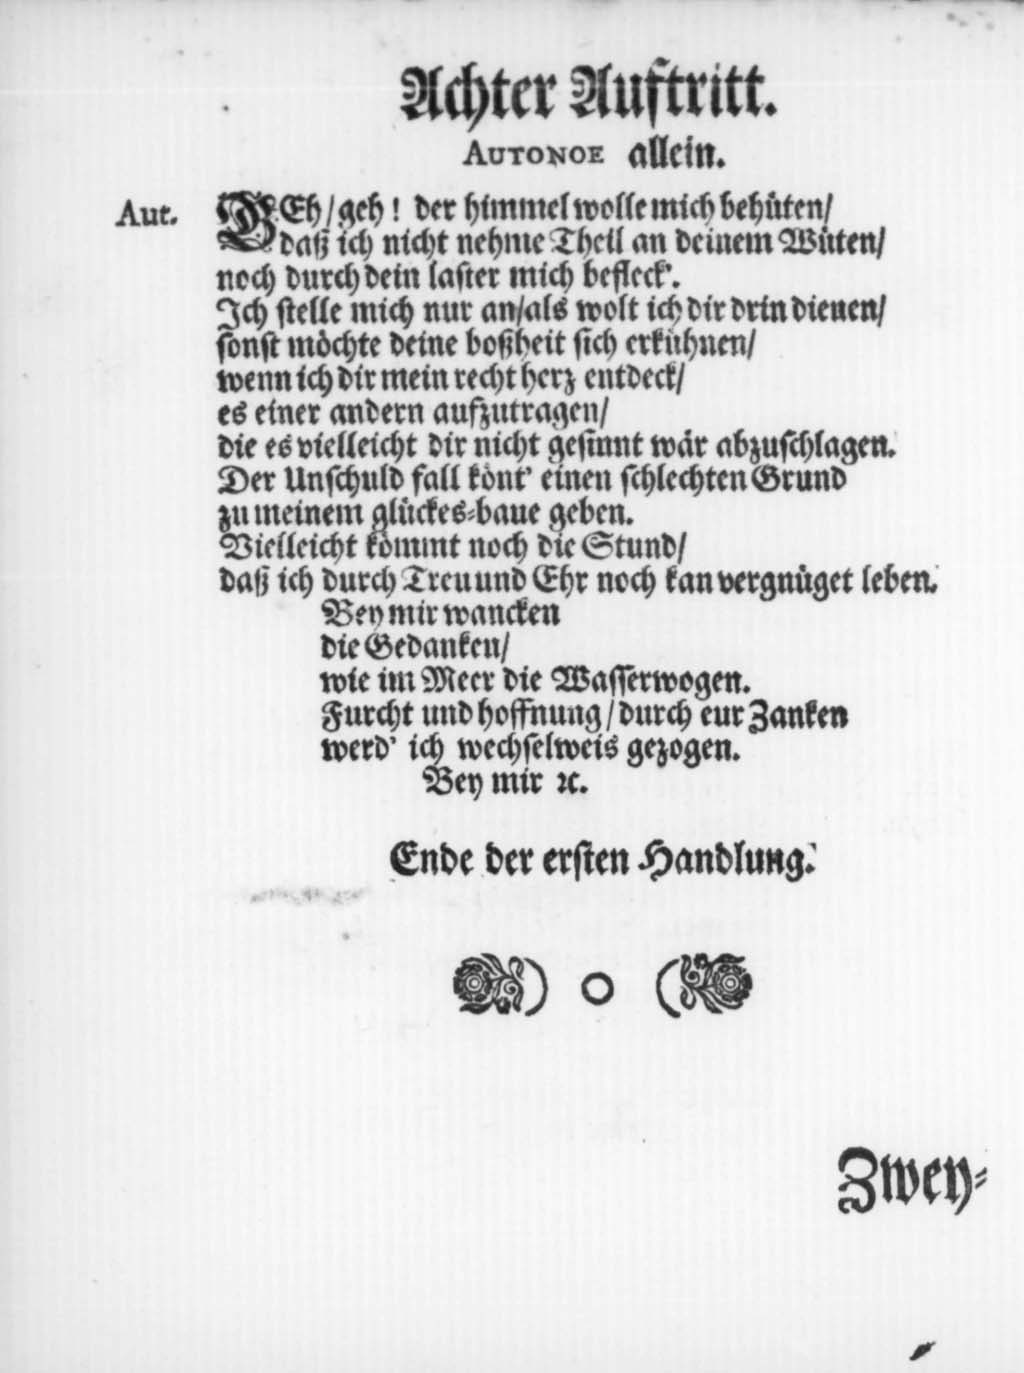 Achter Auftritt.
AUTONOE allein.
Aut. GEh/geh! der himmel wolle mich behüten/
daß ich nicht nehme Theil an deinem Wüten/
noch durch dein laster mich befleck'.
Ich stelle mich nur an/als wolt ich dir drin dienen/
sonst möchte deine boßheit sich erkühnen/
wenn ich dir mein recht herz entdeck/
es einer andern aufzutragen/
die es vielleicht dir nicht gesinnt wär abzuschlagen.
Der Unschuld fall könt' einen schlechten Grund
zu meinem glückes-baue geben.
Vielleicht kömmt noch die Stund/
daß ich durch Treu und Ehr noch kan vergnüget leben.
Bey mir wancken
die Gedanken/
wie im Meer die Wasserwogen.
Furcht und hoffnung/durch eur Zanken
werd' ich wechselweis gezogen.
Bey mir ꝛc.
Ende der ersten Handlung.
Zwey-